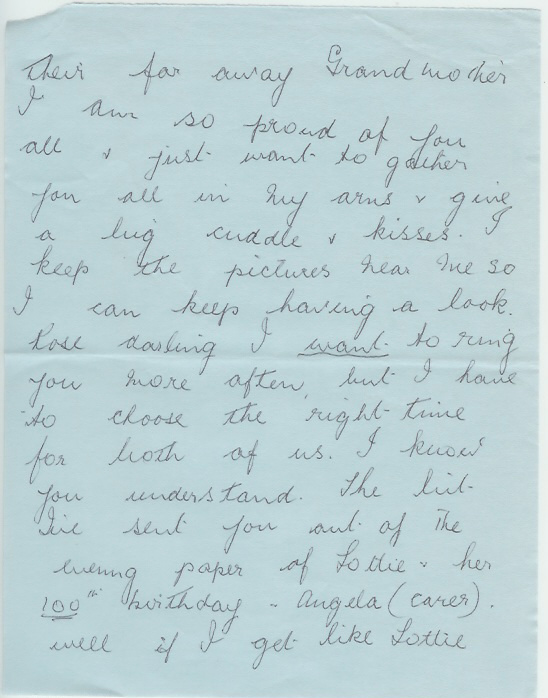 their far away Grandmother
I am so proud of you
all & just want to gather
you all in my arms & give
a big cuddle & kisses. I
keep the pictures near me so
I can keep having a look.
Rose darling I want to ring
you more often, but I have
to choose the right time
for both of us. I know
you understand. The bit
I've sent you out of The
evening paper of Lottie & her
100th birthday - Angela (carer).
well if I get like Lottie